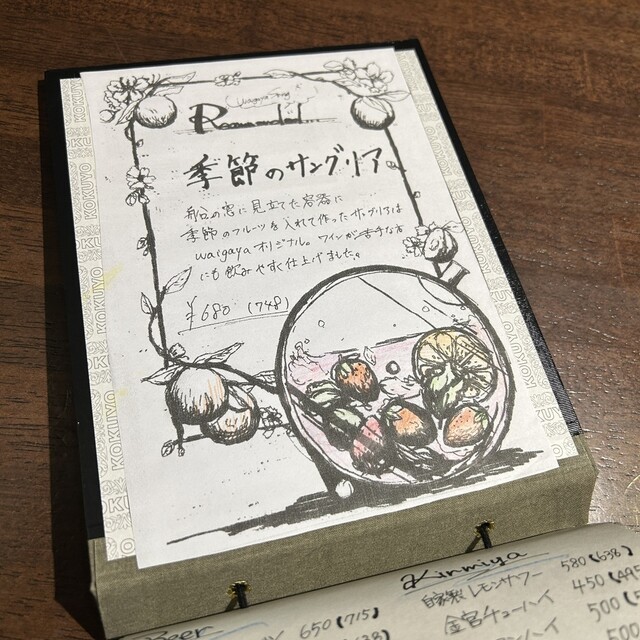 Recommend
季節のサングリア
船の窓に見立てた容器に
季節のフルーツを入れて作ったサングリアは
waigayaオリジナル。ワインが苦手な方
にも飲みやすく仕上げました。
¥680 (748)
KOKUYO
Beer
650 (715)
Kinmiya
自家製レモンサワー 580 (638)
金宮チューハイ 450 (495
500 (5